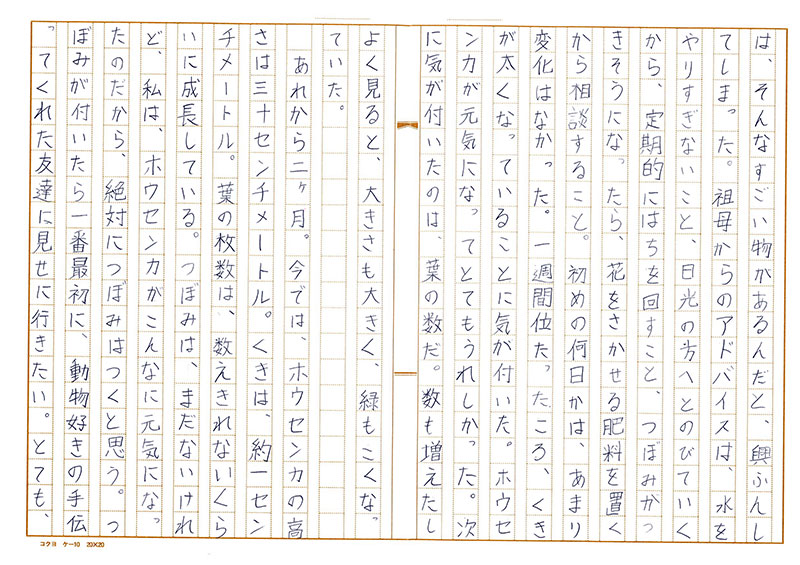 は、そんなすごい物があるんだと、興ふんし
てしまった。祖母からのアドバイスは、水を
やりすぎないこと、日光の方へとのびていく
から、定期的にはちを回すこと、つぼみがつ
きそうになったら、花をさかせる肥料を置く
から相談すること。初めの何日かは、あまり
変化はなかった。一週間位たったころ、くき
が太くなっていることに気が付いた。ホウセ
ンカが元気になってとてもうれしかった。次
に気が付いたのは、葉の数だ。数も増えたし
よく見ると、大きさも大きく、緑もこくなっ
ていた。
あれから二ヶ月。今では、ホウセンカの高
さは三十センチメートル。くきは、約一セン
チメートル。葉の枚数は、数えきれないくら
いに成長している。つぼみは、まだないけれ
ど、私は、ホウセンカがこんなに元気になっ
たのだから、絶対につぼみはつくと思う。つ
ぼみが付いたら一番最初に、動物好きの手伝
ってくれた友達に見せに行きたい。とても、
コクヨ ケー10 20×20